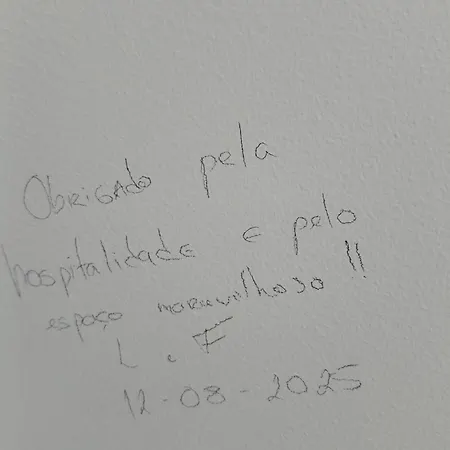 Obrigado pela
hospitalidade e pelo
espaço maravilhoso !!
L e F
12-08-2025